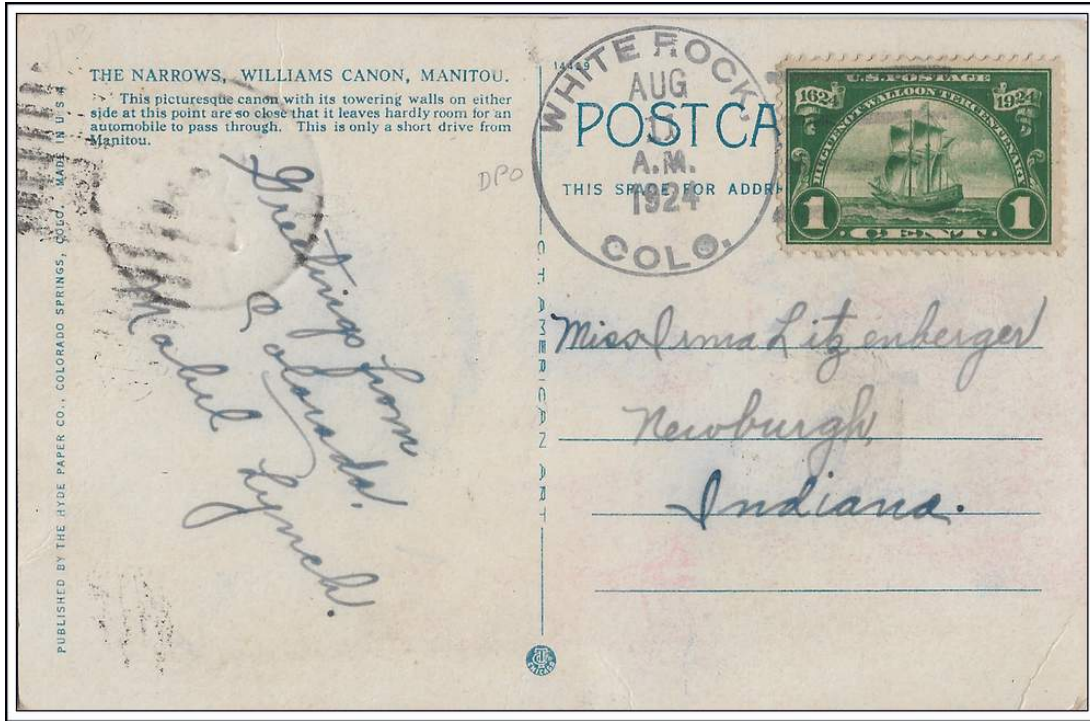 THE NARROWS, WILLIAMS CANON, MANITOU.
This picturesque canon with its towering walls on either
side at this point are so close that it leaves hardly room for an
automobile to pass through. This is only a short drive from
Manitou.
Greetings from
Colorado.
Mabel Lynch.
PUBLISHED BY THE HYDE PAPER CO., COLORADO SPRINGS, COLO. MADE IN U.S.A.
DPO
C.T. AMERICAN ART
CHICAGO
WHITE ROCK,
AUG
A.M.
1924
COLO.
POST CA
THIS SPACE FOR ADDRE
U.S. POSTAGE
1624 1924
HUGUENOT WALLOON TERCENTENARY
1 1
CENT
Miss Irma Litzenberger
Newburgh
Indiana.